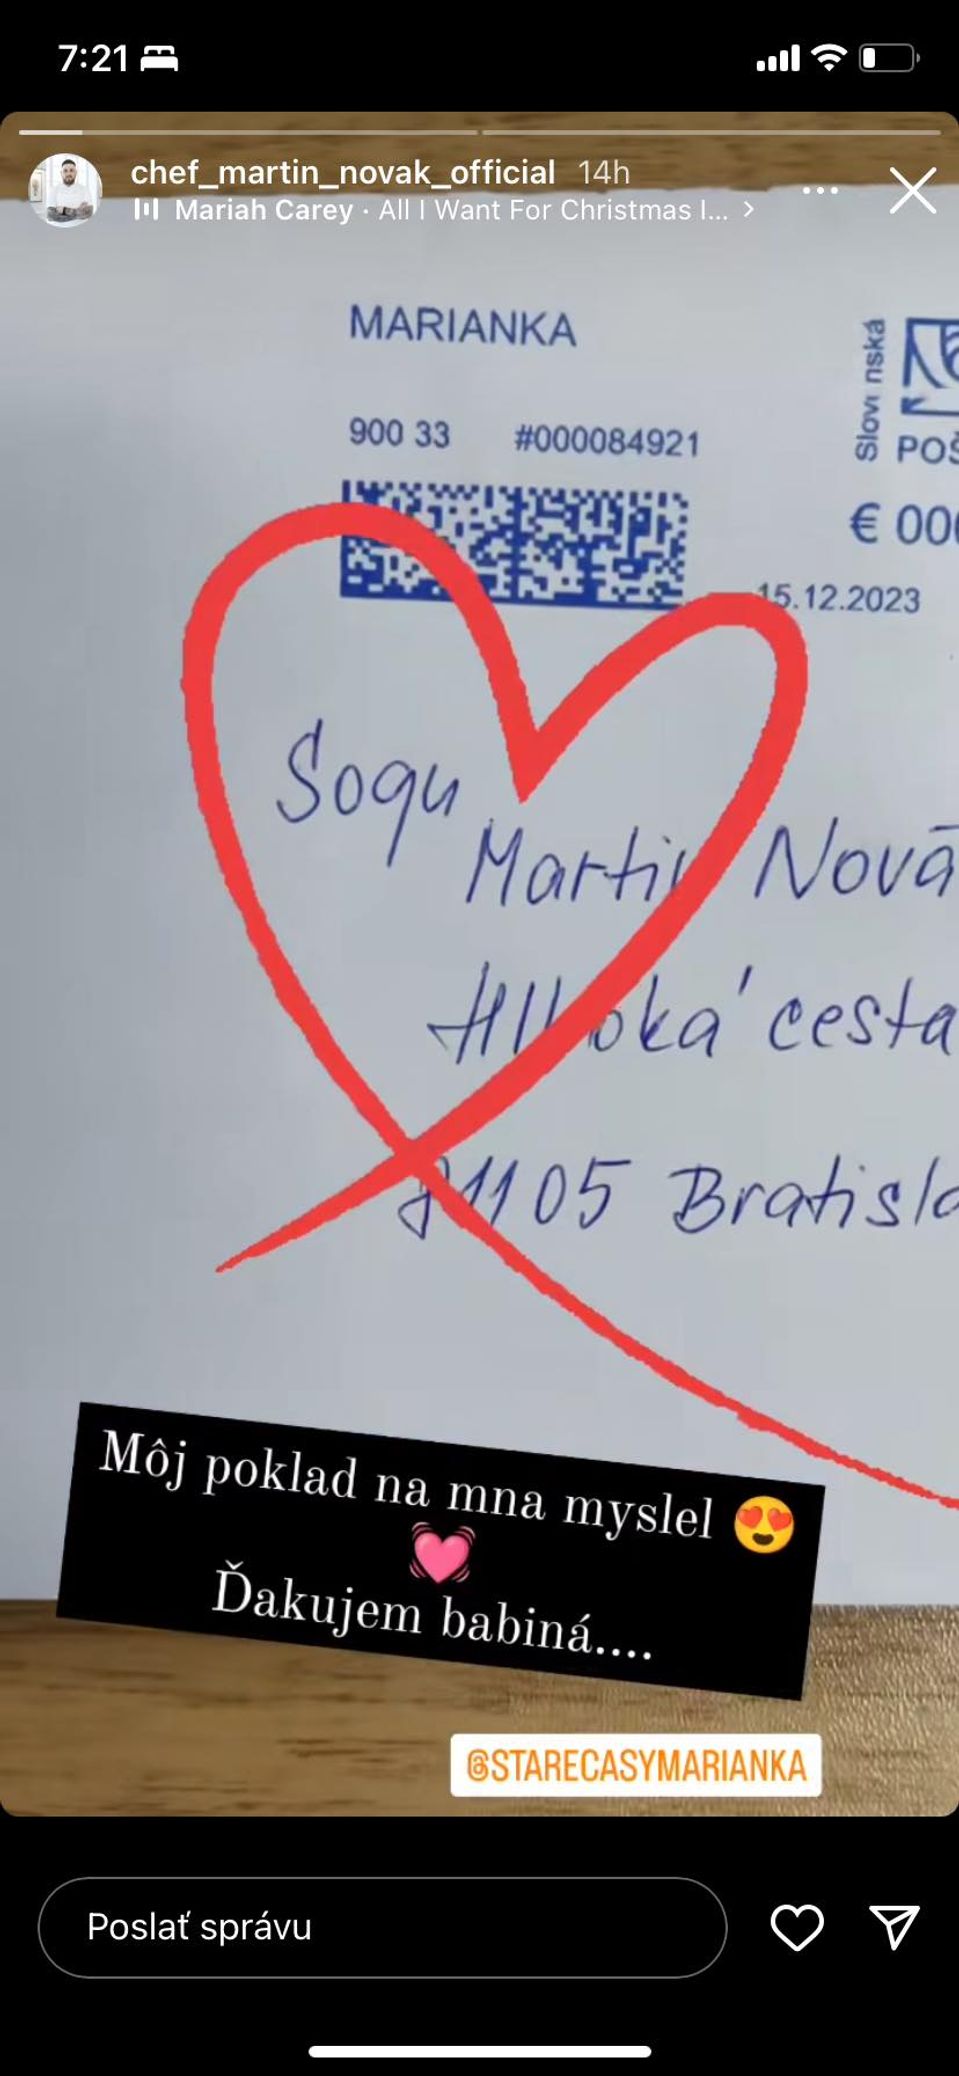 7:21
chef_martin_novak_official 14h
Mariah Carey · All I Want For Christmas I... >
MARIANKA
900 33 #000084921
Slov nská
POŠ
€ 00
15.12.2023
Soqu
Martin Nová
Hlboká cesta
81105 Bratisla
Môj poklad na mna myslel 😍
💓
Ďakujem babiná....
@STARECASYMARIANKA
Poslať správu